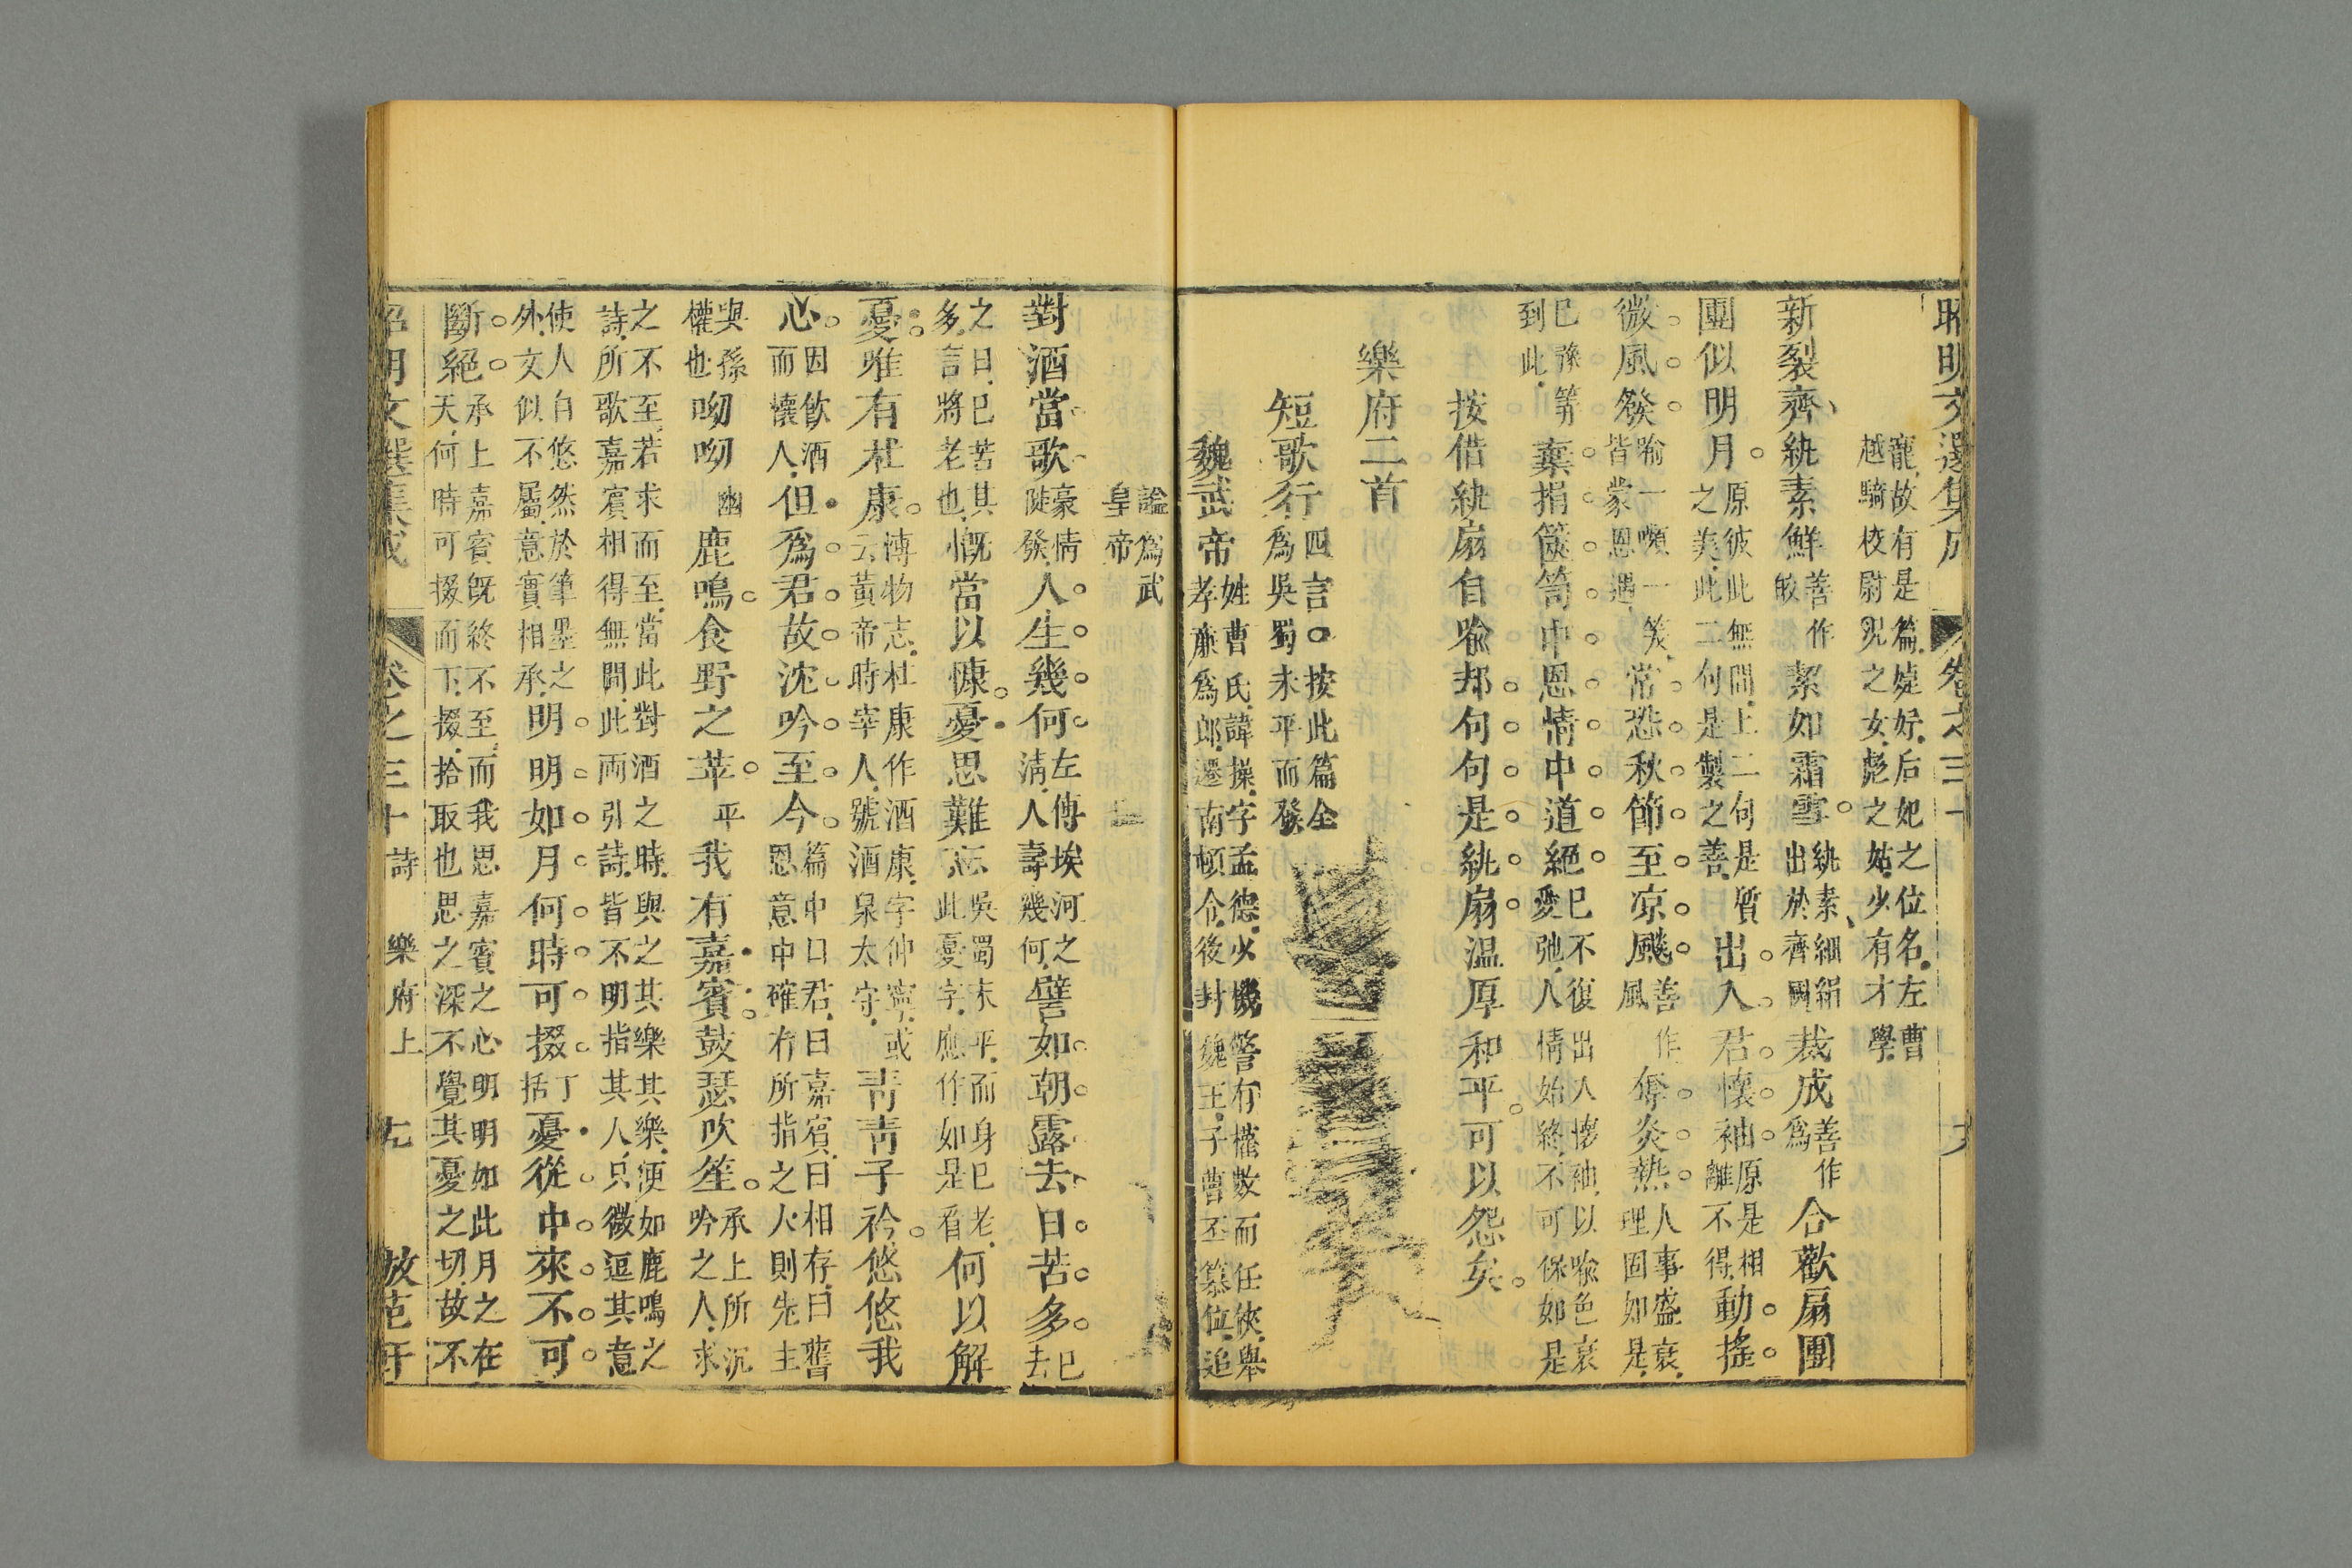 昭明文選集成　卷之三十
寵故有是篇婕妤后妃之位名左曹
越騎校尉況之女彪之姑少有才學
新裂齊紈素鮮
善作
皎
絜如霜雪
紈素細絹
出於齊國
裁成
善作
爲
合歡扇團
團似明月
原彼此無間上二句是質
之美此二句是製之善
出入君懷袖
原是相
離不得
動搖
微風發
喻一嚬一笑
皆蒙恩遇
常恐秋節至凉飈
善作
風
奪炎熱
人事盛衰
理固如是
已豫籌
到此
棄捐篋笥中恩情中道絕
已不復出入懷袖以喻色衰
愛弛人情始終不可保如是
按借紈扇自喻却句句是紈扇温厚和平可以怨矣
樂府二首
短歌行
四言○按此篇全
爲吳蜀未平而發
魏武帝
姓曹氏諱操字孟德少機警有權數而任俠舉
孝廉爲郎遷南頓令後封魏王子曹丕篡位追
諡爲武
皇帝
對酒當歌
豪情
陡發
人生幾何
左傳埃河之
清人壽幾何
譬如朝露去日苦多
已
去
之日已苦其
多言將老也
慨當以慷憂思難忘
吳蜀未平而身已老
此憂字應作如是看
何以解
憂唯有杜康
博物志杜康作酒康字仲寧或
云黃帝時宰人號酒泉太守
青青子衿悠悠我
心
因飲酒
而懷人
但爲君故沈吟至今
篇中曰君曰嘉賓曰相存曰舊
恩意中確有所指之人則先主
與孫
權也
呦呦
幽
鹿鳴食野之苹
平
我有嘉賓鼓瑟吹笙
承上所沉
吟之人求
之不至若求而至當此對酒之時與之其樂其樂便如鹿鳴之
詩所歌嘉賓相得無間此兩引詩皆不明指其人只微逗其意
使人自悠然於筆墨之
外文似不屬意實相承
明明如月何時可掇
丁
括
憂從中來不可
斷絕
承上嘉賓既終不至而我思嘉賓之心明明如此月之在
天何時可掇而下掇拾取也思之深不覺其憂之切故不
昭明文選集成　卷之三十　詩　樂府上